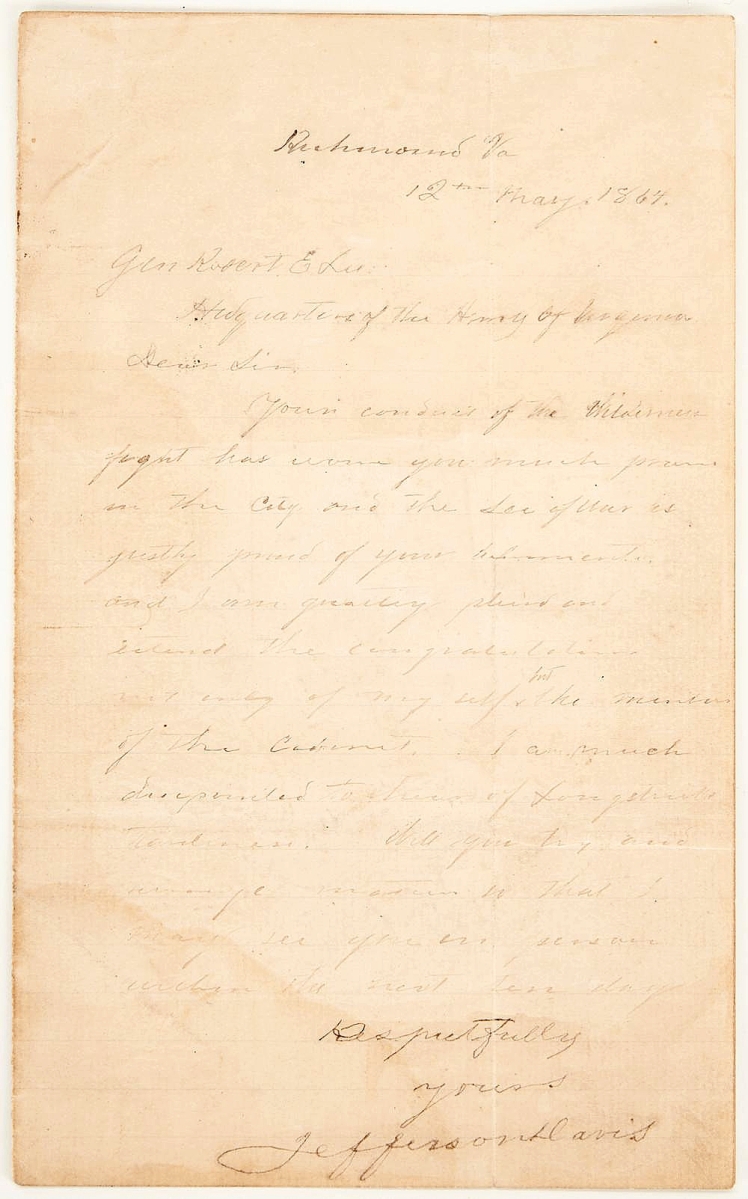 Richmond Va
12th May. 1864.
Gen Robert E Lee.
Hedquarters of the Army of Virginia
Dear Sir.
Your conduct of the Wilderness
fight has wone you much praise
in the City and the Sec of War is
justly proud of your
and I am greatly and
extend the congratulations
not only of my self but the members
of the Cabinet. I am much
to hear of Longstreets
tardiness. Will you try and
arrange matters so that I
may see you in person
within the next ten days
Respectfully
yours
Jefferson Davis